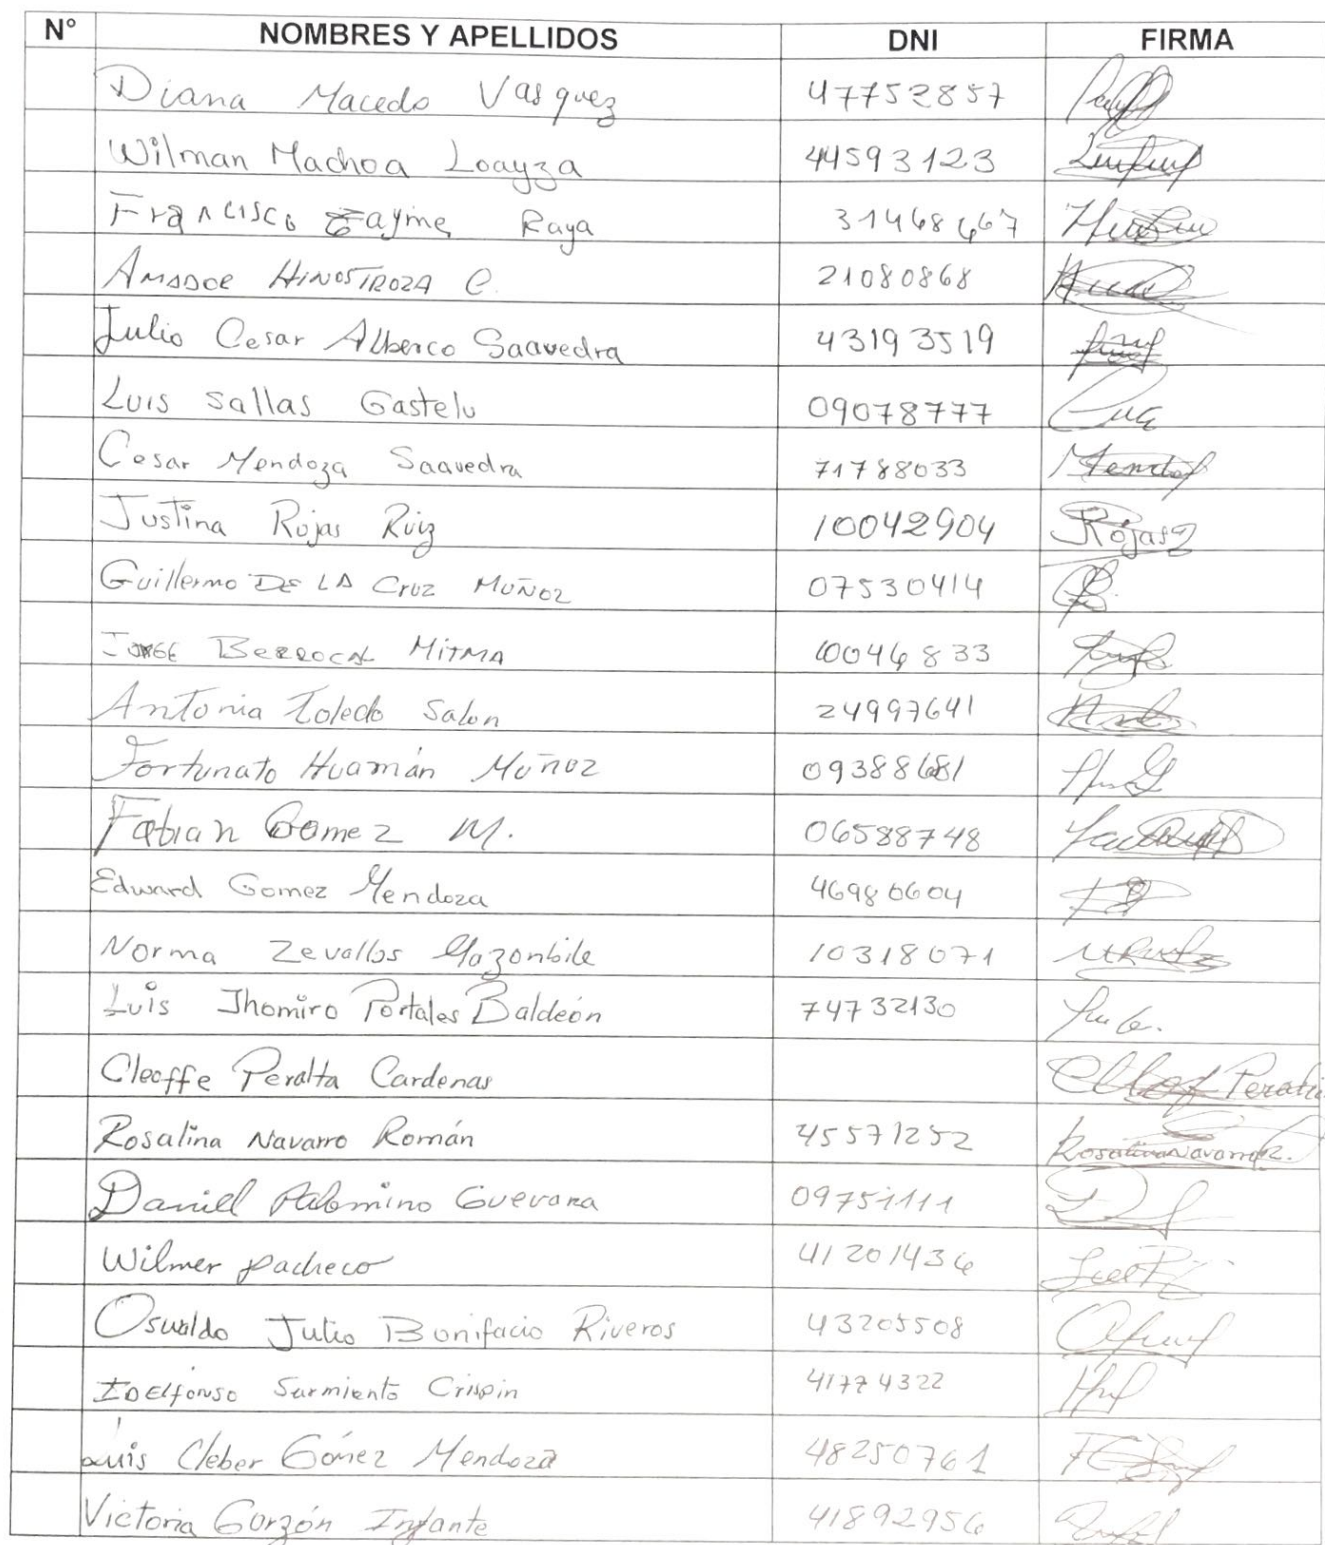 N° NOMBRES Y APELLIDOS DNI FIRMA
Diana Macedo Vasquez 47752857
Wilman Machoa Loayza 44593123
Francisco Jayme Raya 31468667
AMADOR HINOSTROZA C. 21080868
Julio Cesar Alberco Saavedra 43193519
Luis Sallas Gastelu 09078777
Cesar Mendoza Saavedra 71788033
Justina Rojas Ruiz 10042904 Rojas
Guillermo DE LA Cruz MUÑOZ 07530414
JORGE BERROCAL MITMA 10046833
Antonia Toledo Salon 24997641
Fortunato Huamán Muñoz 09388681
Fabian Gomez M. 06588748
Edward Gomez Mendoza 46980604
Norma Zevallos 10318071
Luis Jhomiro Portales Baldeón 74732130
Cleoffe Peralta Cardenas
Rosalina Navarro Román 45571252 Rosalina Navarro R.
Daniel Palomino Guevara 09751111
Wilmer pacheco 41201436
Osualdo Julio Bonifacio Riveros 43205508
IDElfonso Sarmiento Crispin 41774322
Luis Cleber Gómez Mendoza 48250761
Victoria Garzón Infante 41892956